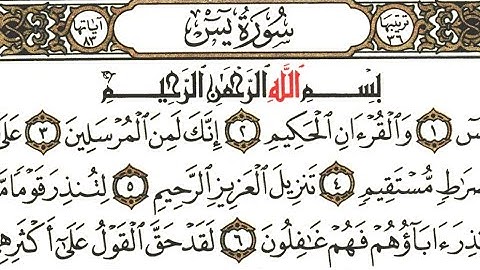 ترتيبها ٣٦ سُورَةُ يسٓ آياتها ٨٣
بِسْمِ ٱللَّهِ ٱلرَّحْمَٰنِ ٱلرَّحِيمِ
سٓ ١ وَٱلْقُرْءَانِ ٱلْحَكِيمِ ٢ إِنَّكَ لَمِنَ ٱلْمُرْسَلِينَ ٣ عَلَىٰ
صِرَٰطٍ مُّسْتَقِيمٍ ٤ تَنزِيلَ ٱلْعَزِيزِ ٱلرَّحِيمِ ٥ لِتُنذِرَ قَوْمًا مَّا
نذِرَ ءَابَآؤُهُمْ فَهُمْ غَٰفِلُونَ ٦ لَقَدْ حَقَّ ٱلْقَوْلُ عَلَىٰٓ أَكْثَرِهِ